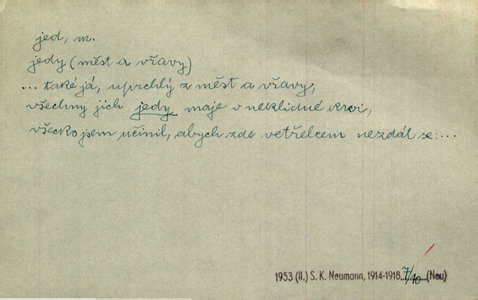 jed, m.
jedy (měst a vřavy)
... také já, uprchlý z měst a vřavy,
všechny jich jedy maje v neklidné krvi,
všecko jsem učinil, abych zde vetřelcem nezdál se: ...
1953 (II.) S. K. Neumann, 1914-1918 7/10 (Neu)